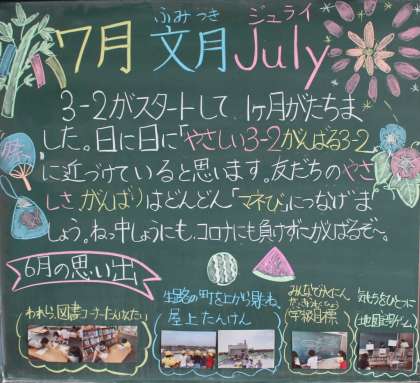 ふみつき ジュライ
7月 文月 July
3-2がスタートして、1ヶ月がたちま
した。日に日に「やさしい3-2がんばる3-2」
に近づけていると思います。友だちのやさ
しさ、がんばりはどんどん「マネび」につなげま
しょう。ねっ中しょうにも、コロナにも負けずにがんばるぞ〜。
6月の思い出
われら、図書コーナーたんけんたい
町を上から見たね。
屋上たんけん
学級目標
気もちをひとつに